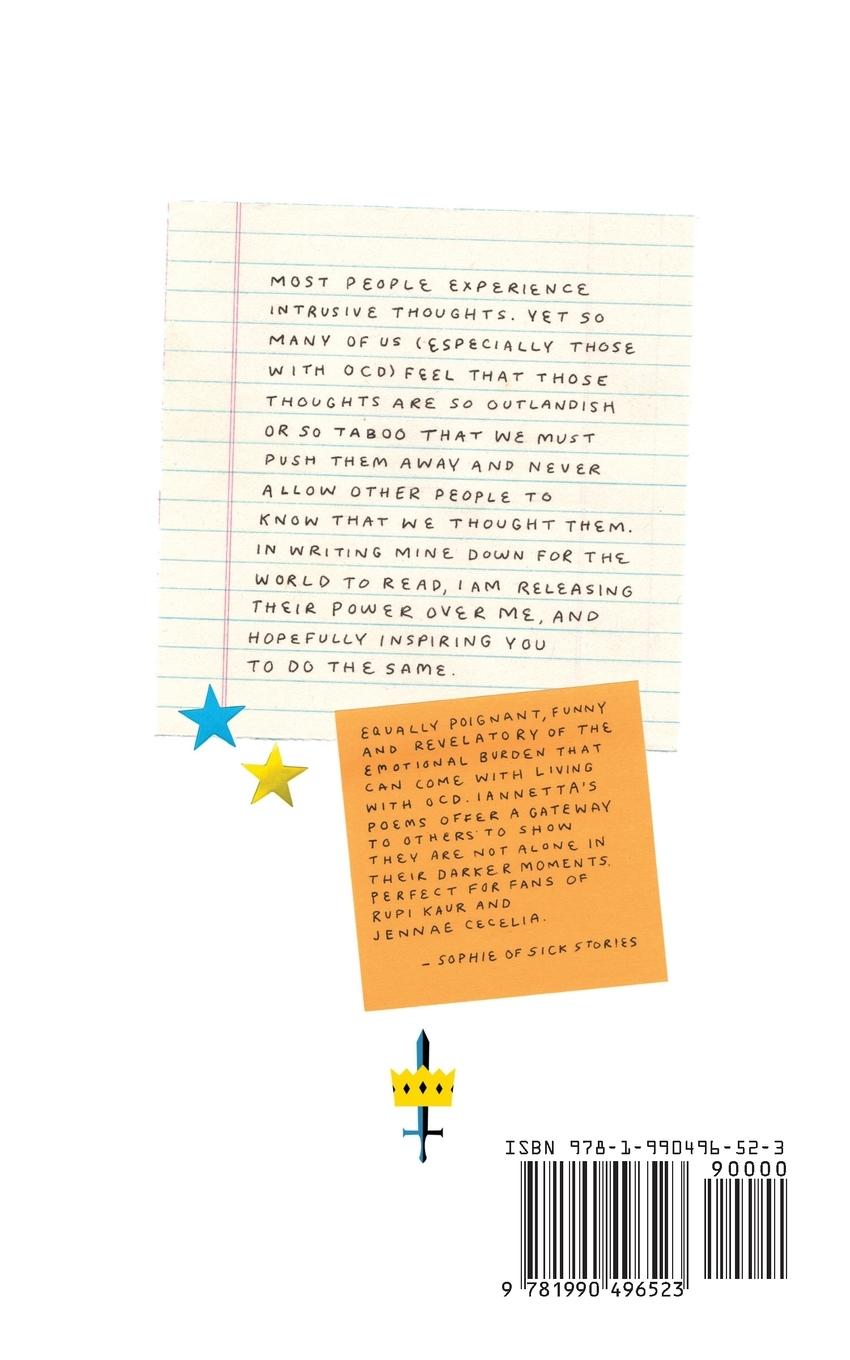 MOST PEOPLE EXPERIENCE
INTRUSIVE THOUGHTS. YET SO
MANY OF US (ESPECIALLY THOSE
WITH OCD) FEEL THAT THOSE
THOUGHTS ARE SO OUTLANDISH
OR SO TABOO THAT WE MUST
PUSH THEM AWAY AND NEVER
ALLOW OTHER PEOPLE TO
KNOW THAT WE THOUGHT THEM.
IN WRITING MINE DOWN FOR THE
WORLD TO READ, I AM RELEASING
THEIR POWER OVER ME, AND
HOPEFULLY INSPIRING YOU
TO DO THE SAME.
EQUALLY POIGNANT, FUNNY
AND REVELATORY OF THE
EMOTIONAL BURDEN THAT
CAN COME WITH LIVING
WITH OCD. IANNETTA'S
POEMS OFFER A GATEWAY
TO OTHERS TO SHOW
THEY ARE NOT ALONE IN
THEIR DARKER MOMENTS.
PERFECT FOR FANS OF
RUPI KAUR AND
JENNAE CECELIA.
– SOPHIE OF SICK STORIES
ISBN 978-1-990496-52-3
90000
9 781990 496523